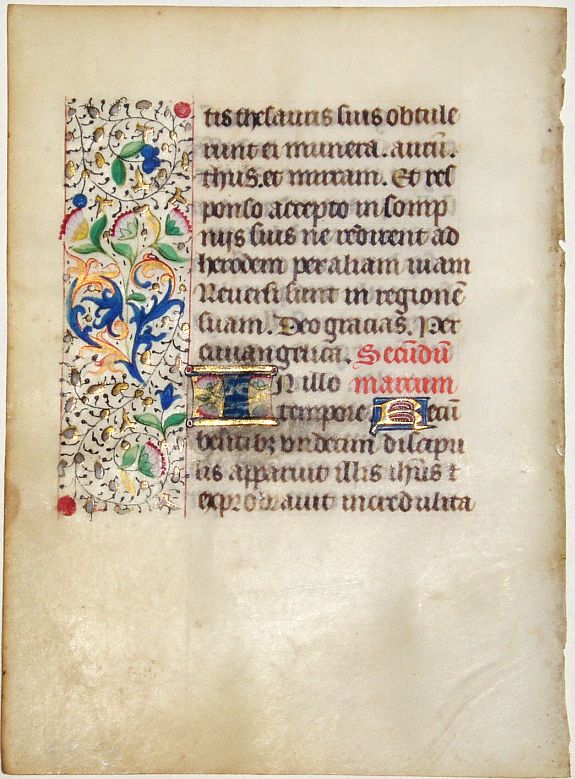 tis thesauris suis obtule
runt ei munera. aurū.
thus. et mirram. Et res
ponso accepto in somp
nijs suis ne redirent ad
herodem per aliam viam
Reuersi sunt in regionē
suam. Deo gracias. Per
euuangelica. Secūdū
IN illo marcum
tempore Recū
bentibꝫ vndecim discipu
lis apparuit illis ihūs ⁊
exprobrauit incredulita